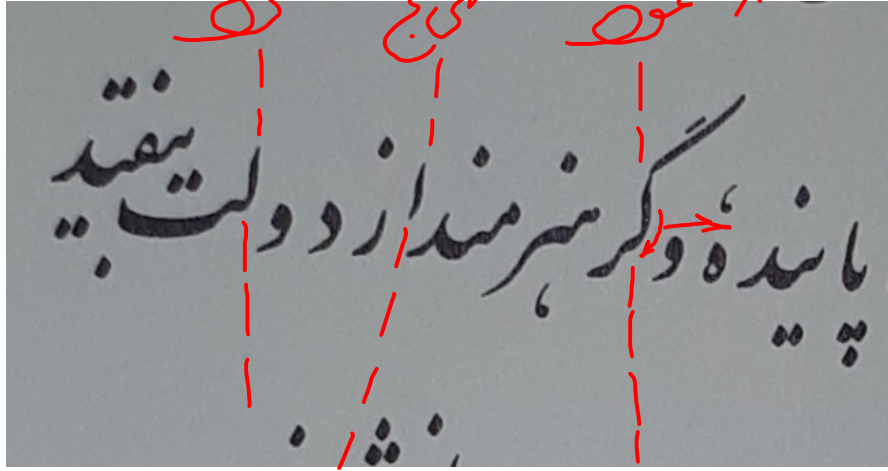 پاینده، وگر هنرمند از دولت بیفتد